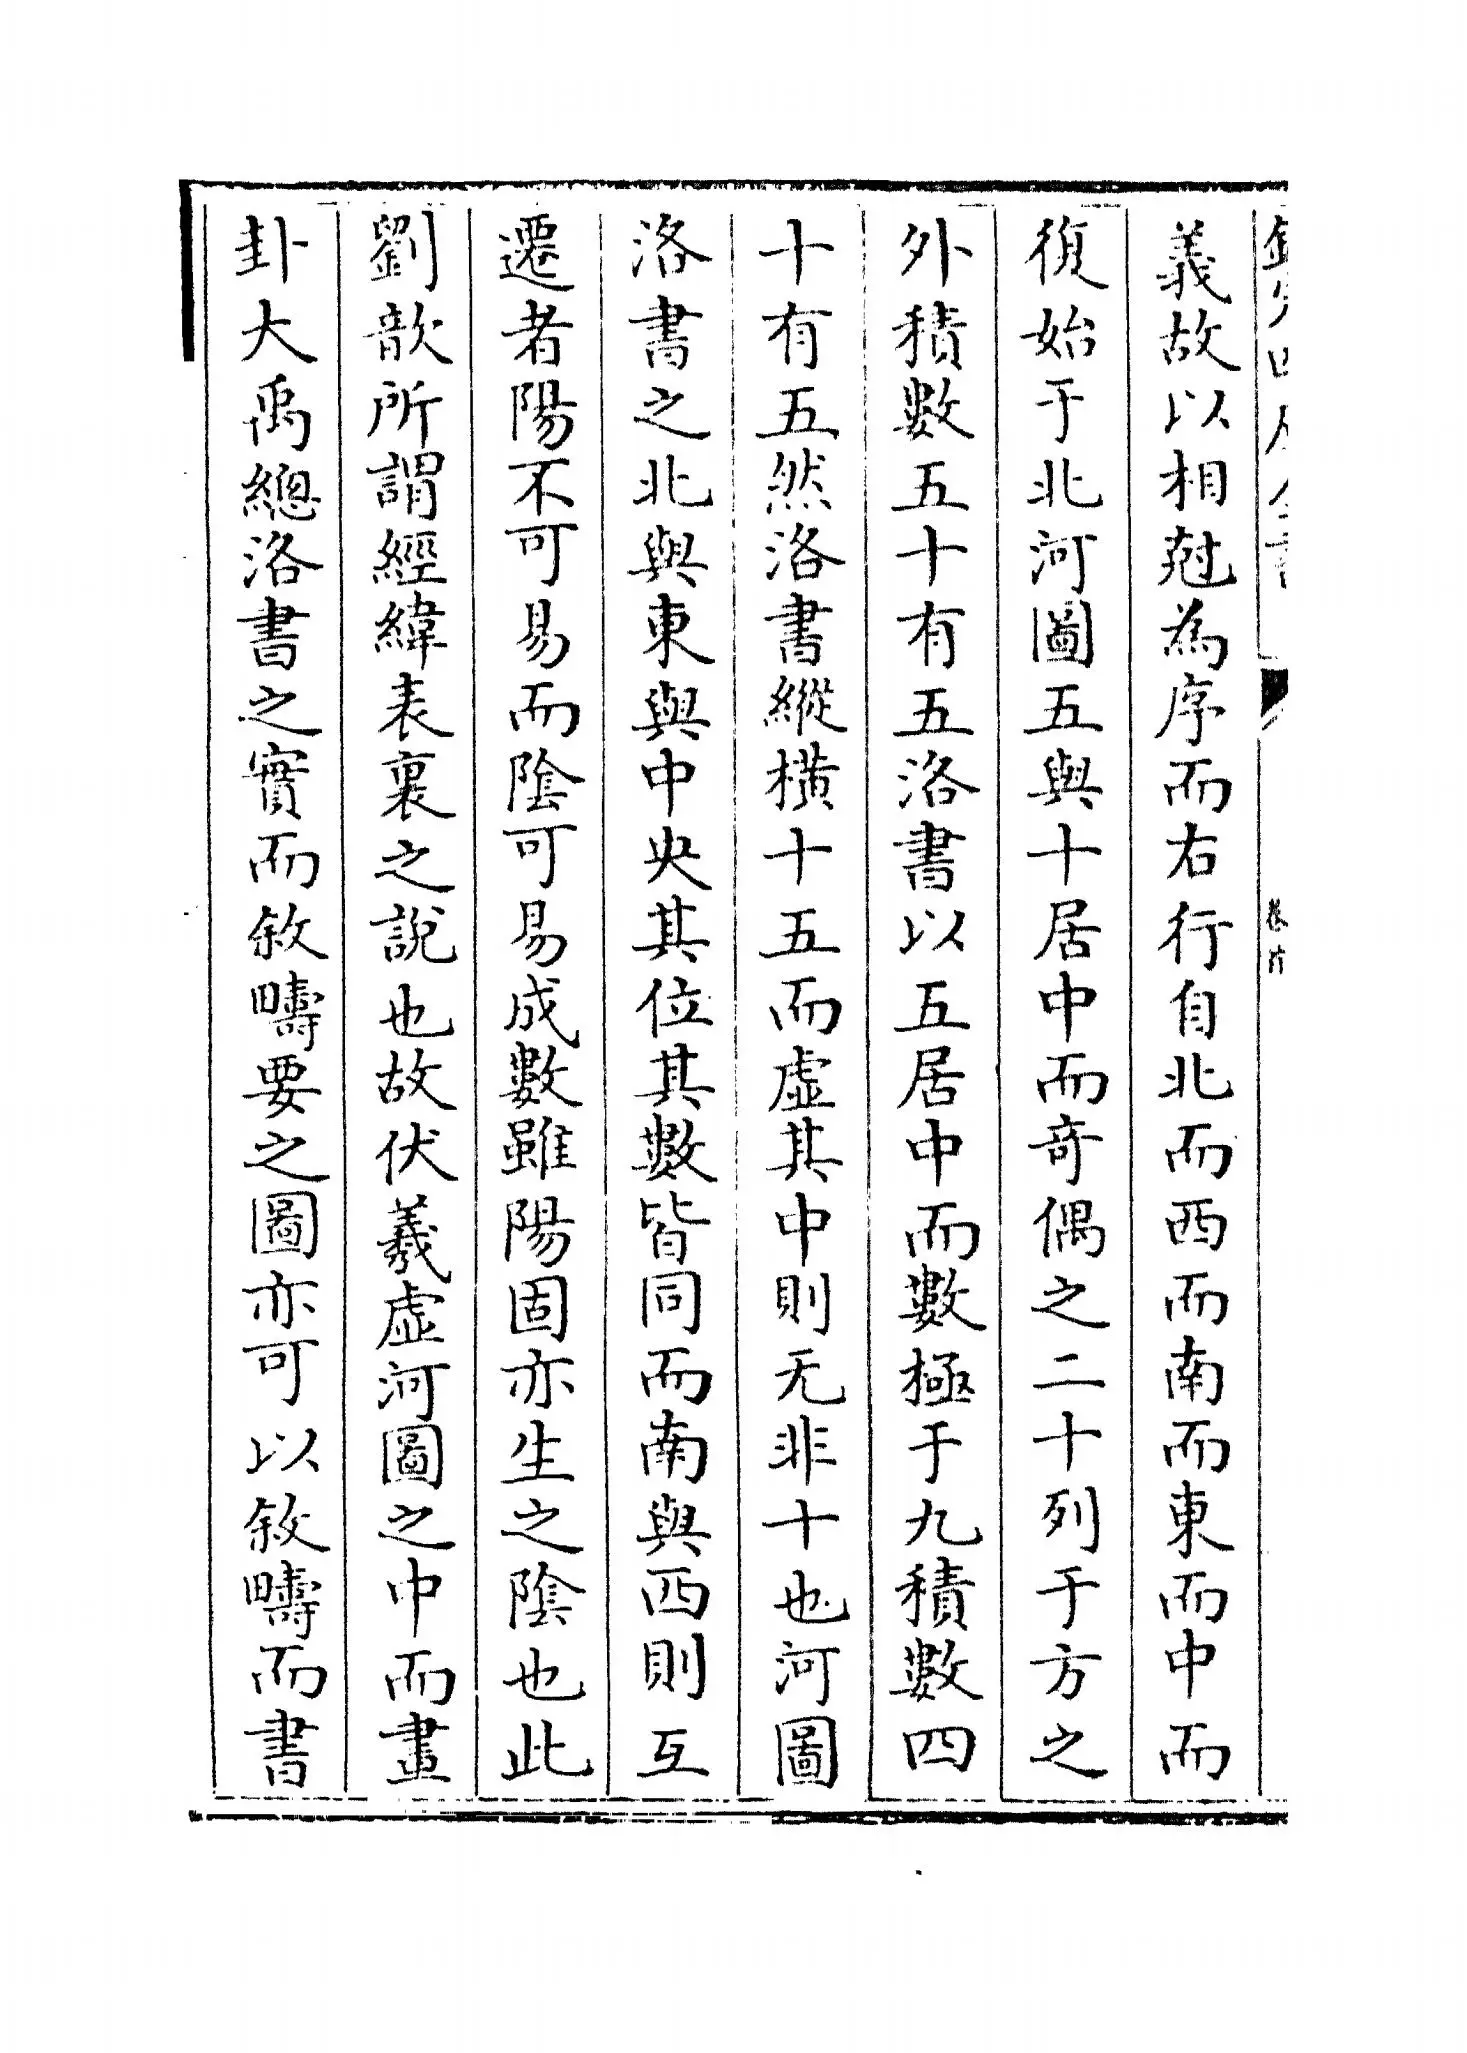 義故以相尅為序而右行自北而西而南而東而中而
復始于北河圖五與十居中而奇偶之二十列于方之
外積數五十有五洛書以五居中而數極于九積數四
十有五然洛書縱橫十五而虛其中則无非十也河圖
洛書之北與東與中央其位其數皆同而南與西則互
遷者陽不可易而陰可易成數雖陽固亦生之陰也此
劉歆所謂經緯表裏之說也故伏羲虛河圖之中而畫
卦大禹總洛書之實而敘疇要之圖亦可以敘疇而書